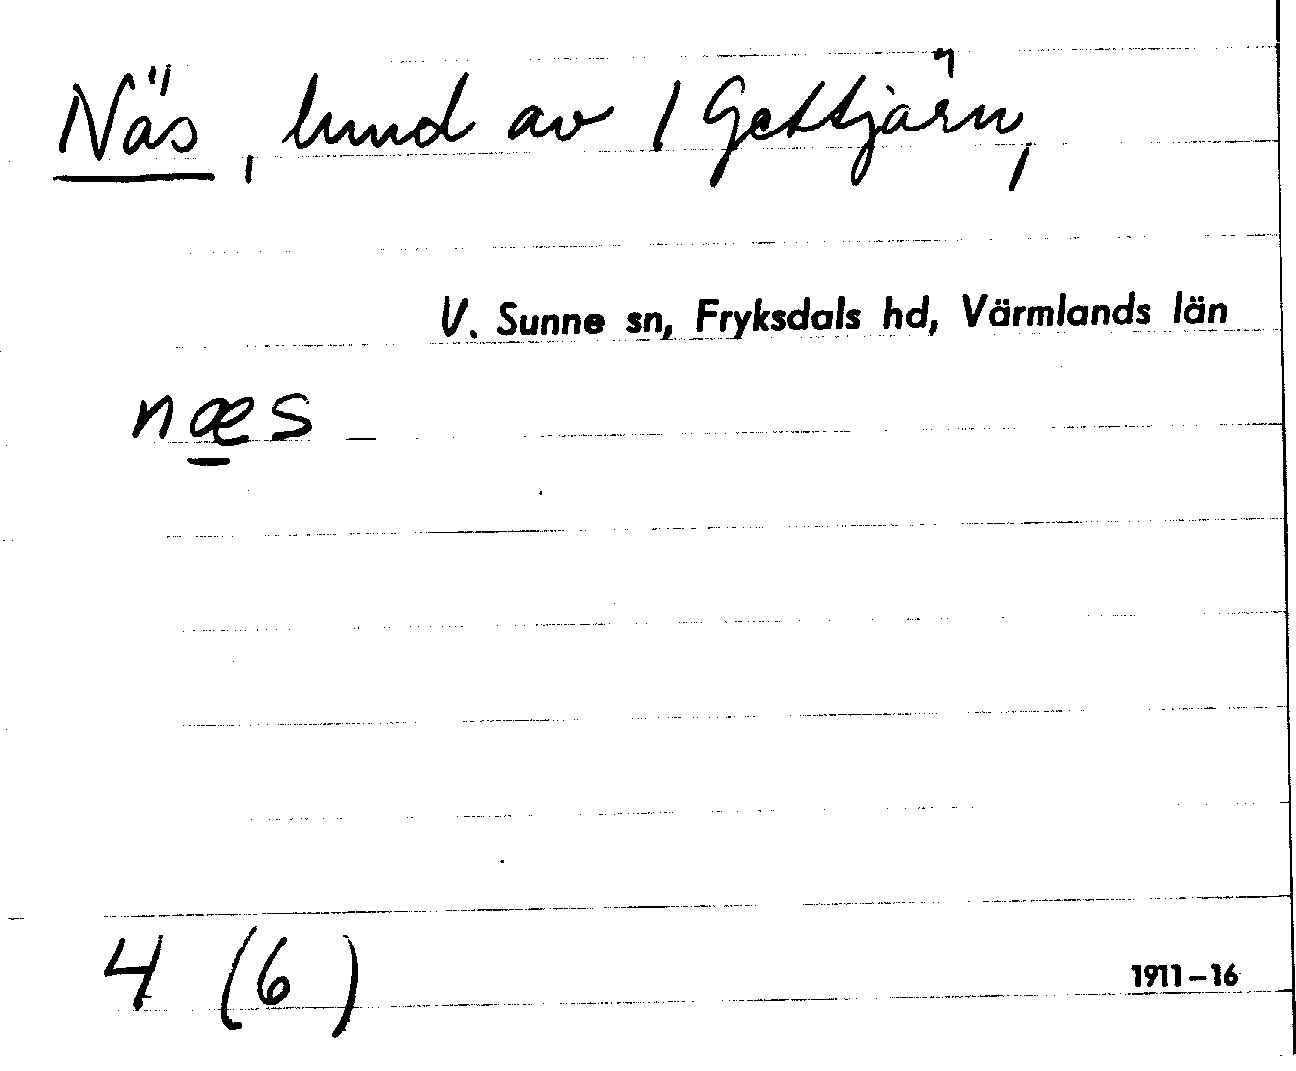 Näs, hmd av 1 Gettjärn,
V. Sunne sn, Fryksdals hd, Värmlands län
næs
4 (6)
1911–16